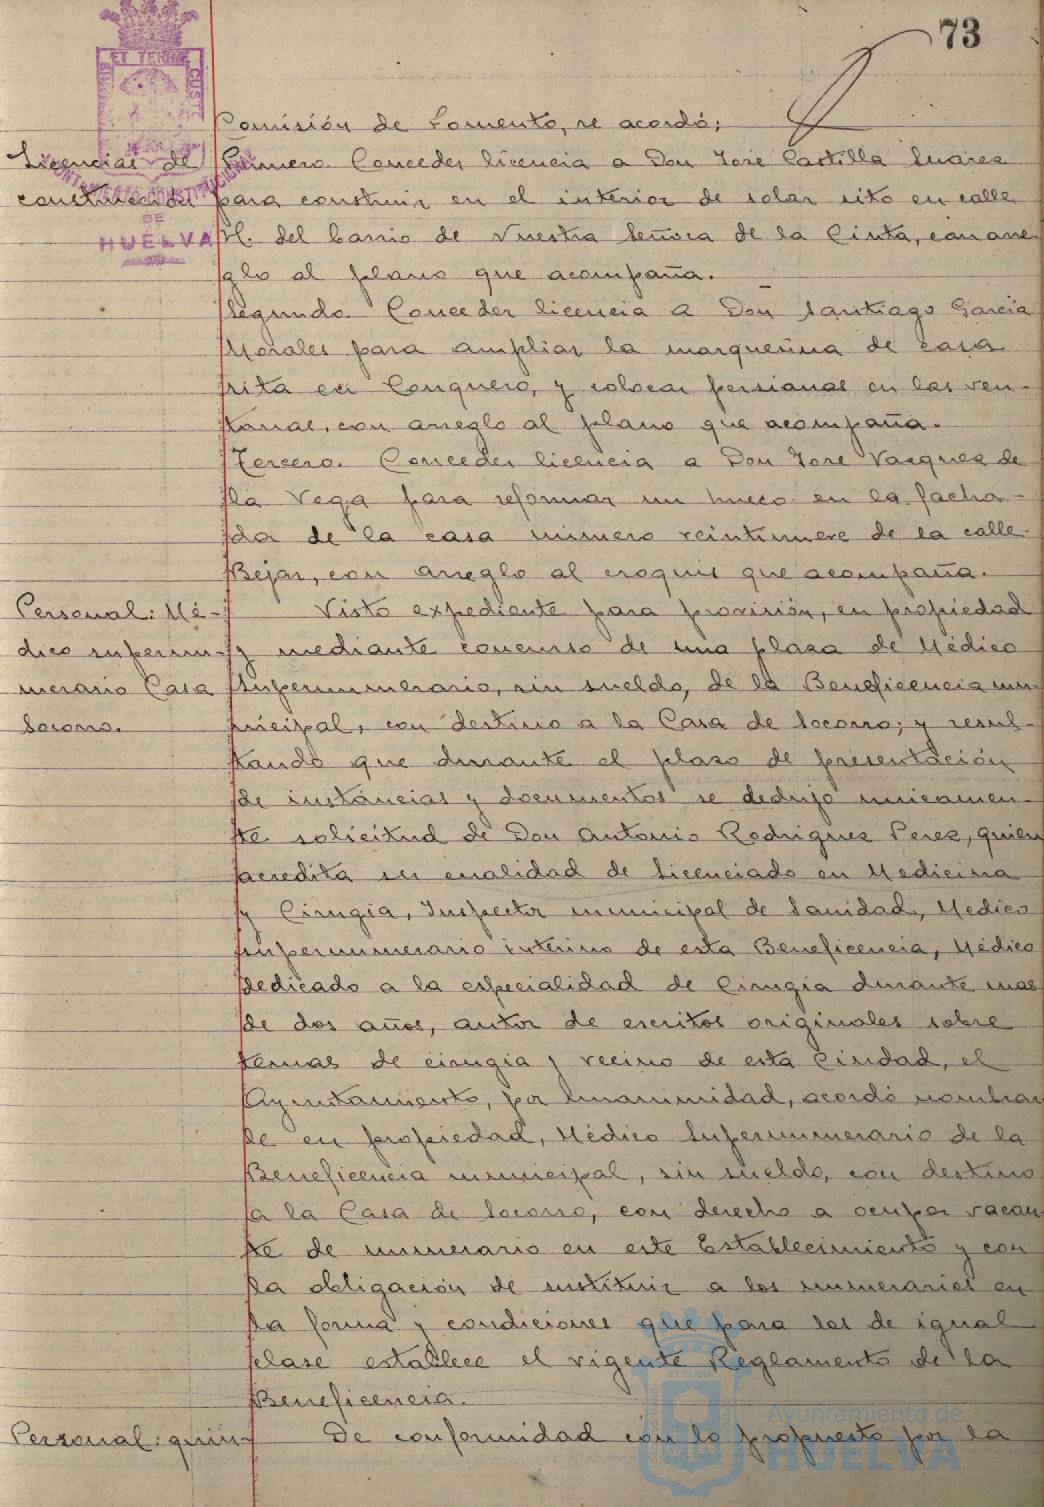 73
ET TERRAE
HUELVA
DE
Comisión de Fomento, se acordó;
Licencias de
construcción
Primero. Conceder licencia a Don José Castilla Suárez
para construir en el interior de solar sito en calle
H. del barrio de Nuestra Señora de la Cinta, con arre
glo al plano que acompaña.
Segundo. Conceder licencia a Don Santiago García
Morales para ampliar la marquesina de casa
sita en Conquero, y colocar persianas en las ven-
tanas, con arreglo al plano que acompaña.
Tercero. Conceder licencia a Don José Vazquez de
la Vega para reformar un hueco en la facha-
da de la casa número veintinueve de la calle
Bejar, con arreglo al croquis que acompaña.
Personal: Mé-
dico supernu-
merario Casa
Socorro.
Visto expediente para provisión, en propiedad
y mediante concurso de una plaza de Médico
Supernumerario, sin sueldo, de la Beneficencia mu-
nicipal, con destino a la Casa de Socorro; y resul-
tando que durante el plazo de presentación
de instancias y documentos se dedujo unicamen-
te solicitud de Don Antonio Rodriguez Perez, quien
acredita su cualidad de Licenciado en Medicina
y Cirugia, Inspector municipal de Sanidad, Medico
supernumerario interino de esta Beneficencia, Médico
dedicado a la especialidad de Cirugia durante mas
de dos años, autor de escritos originales sobre
temas de cirugia y vecino de esta Ciudad, el
Ayuntamiento, por unanimidad, acordó nombrar
le en propiedad, Médico Supernumerario de la
Beneficencia municipal, sin sueldo, con destino
a la Casa de Socorro, con derecho a ocupar vacan
te de numerario en este Establecimiento y con
la obligación de sustituir a los numerarios en
la forma y condiciones que para los de igual
clase establece el vigente Reglamento de la
Beneficencia.
Personal: quin-
De conformidad con lo propuesto por la
Ayuntamiento de
HUELVA